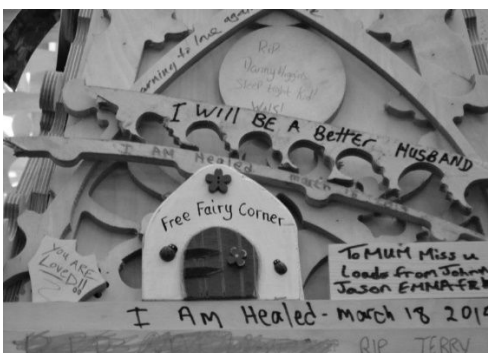 to love again
RIP
Sleep tight kid!
I WILL BE A BeTTer HUSBAND
I AM Healed march
Free Fairy Corner
YOU ARE
LOVED!!
To MUM Miss u
Loads from John
Jason EMMA
I AM Healed - march 18 201
RIP TERRY